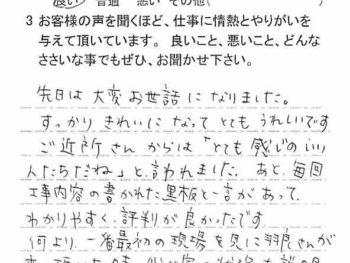 良い 普通 悪い その他( )
3 お客様の声を聞くほど、仕事に情熱とやりがいを
与えて頂いています。 良いこと、悪いこと、どんな
ささいな事でもぜひ、お聞かせ下さい。
先日は大変お世話になりました。
すっかりきれいになってとてもうれしいです
ご近所さんからは「とても感じのいい
人たちだね」と言われました。あと、毎回
工事内容の書かれた黒板と一言があって、
わかりやすく、評判が良かったです
何より、一番最初の現場を見に羽良さんが